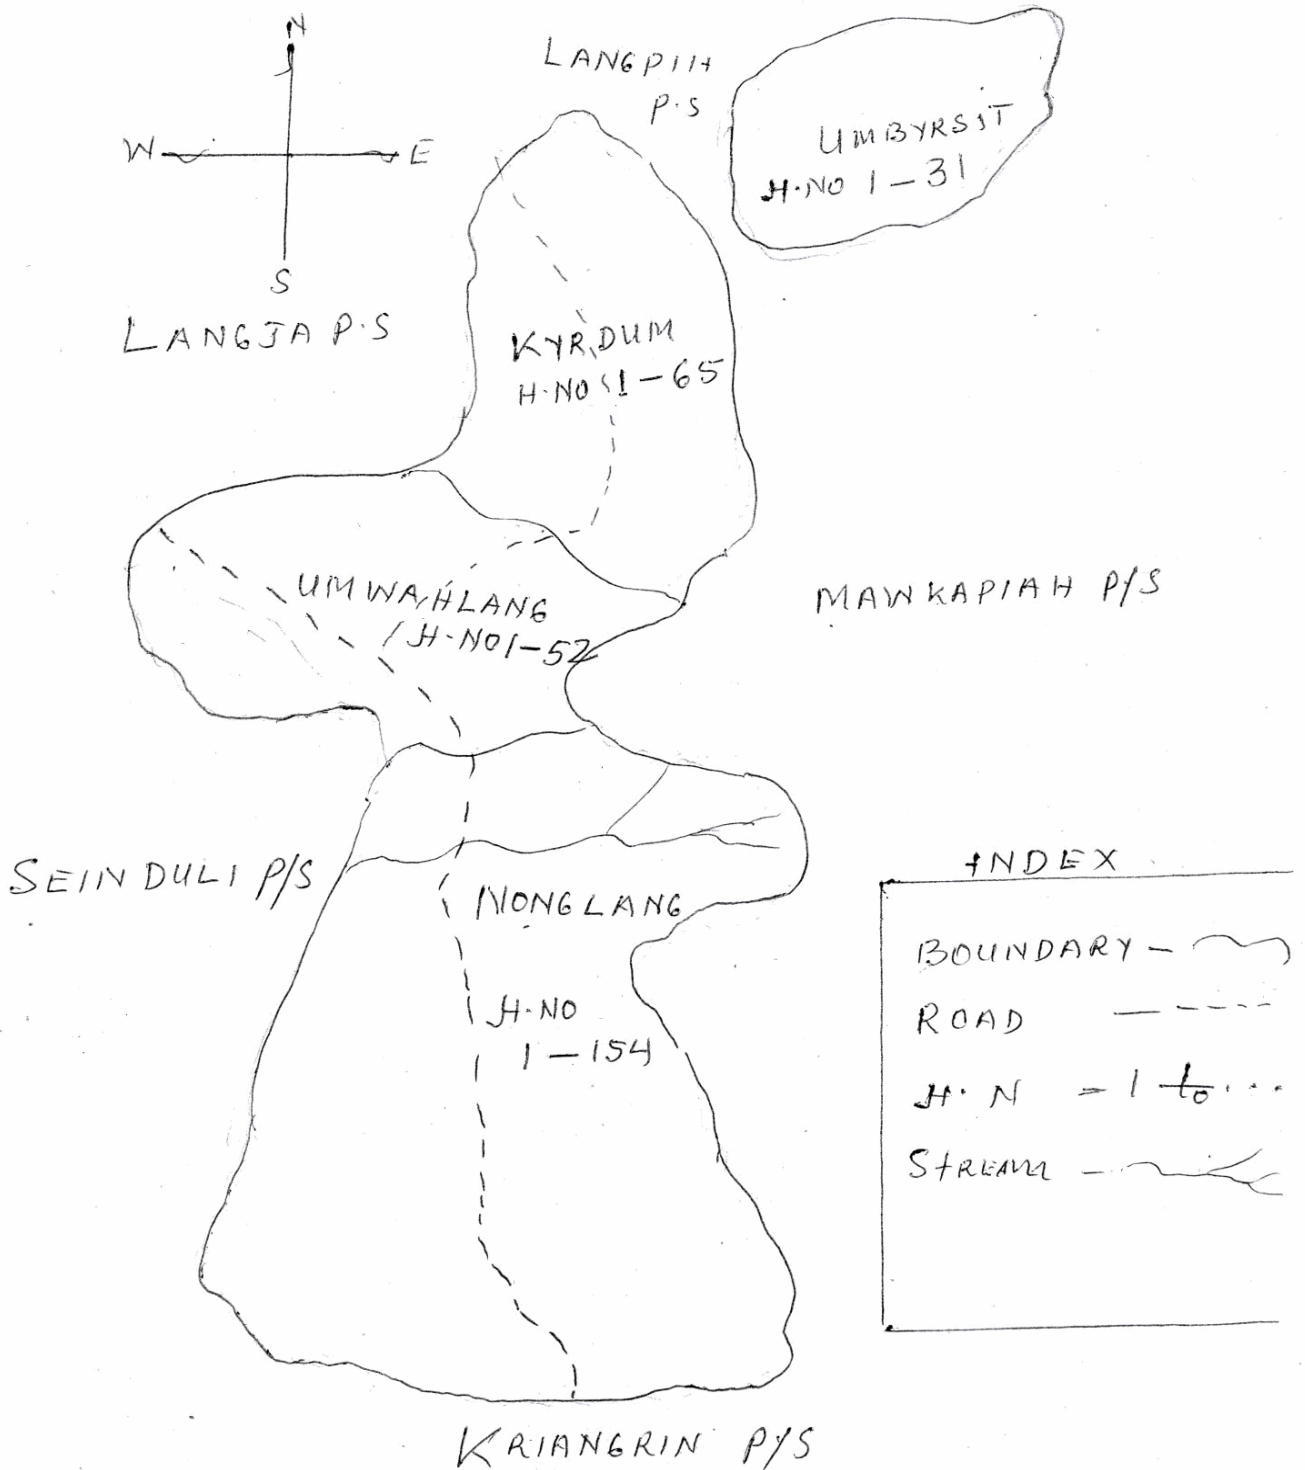 N
LANGPIH
P.S
W E
UMBYRSIT
H.NO 1-31
S
LANGJA P.S
KYRDUM
H.NO 1-65
UMWAHLANG
H.NO 1-52
MAWKAPIAH P/S
SEINDULI P/S
NONGLANG
H.NO
1-154
INDEX
BOUNDARY -
ROAD
H.N = 1 to ...
STREAM -
KRIANGRIN P/S